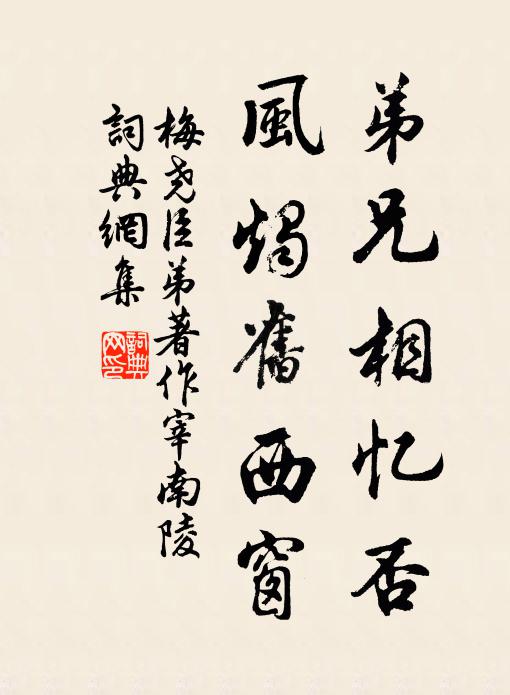 弟兄相忆否
風燭舊西窗
梅堯臣弟著作宰南陵
詞典網集
詞典网印